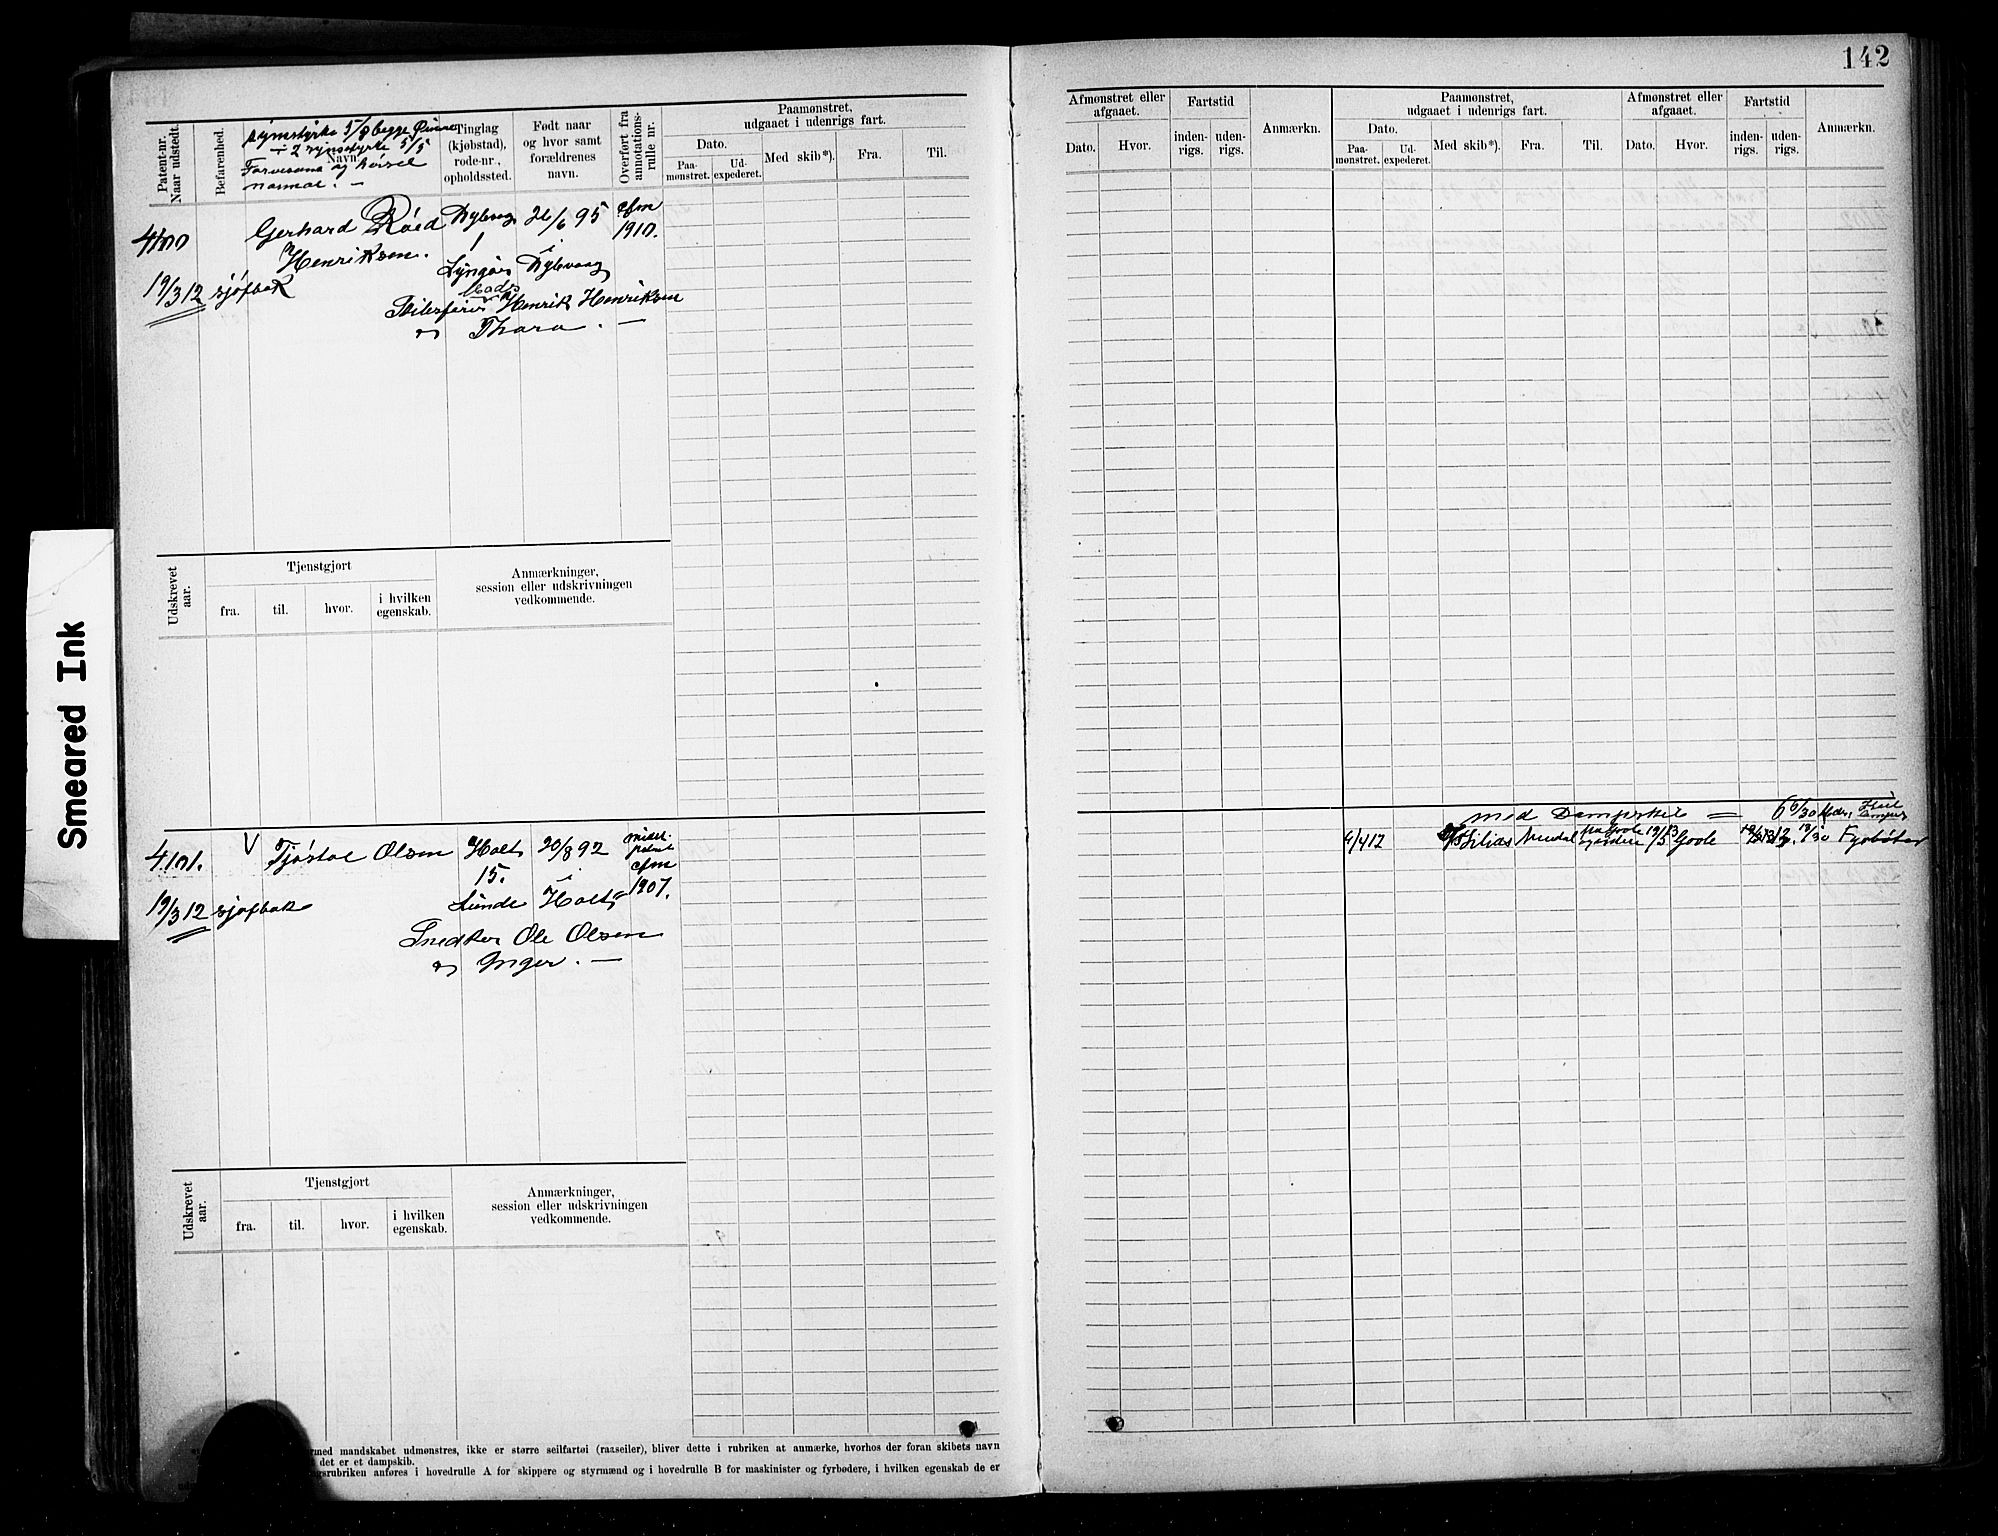 142
Smeared Ink
Patent-nr.
Naar udstedt.
Befarenhed.
Synsstyrke 5/8 begge Øine
÷ 2 synsstyrke 5/5
Navn
Farvesans og hørsel
normal. —
Tinglag
(kjøbstad),
rode-nr.,
opholdssted.
Født naar
og hvor samt
forældrenes
navn.
Overført fra
annotations-
rulle nr.
Paamønstret,
udgaaet i udenrigs fart.
Dato.
Paa-
mønstret.
Ud-
expederet.
Med skib*).
Fra.
Til.
4100 Gerhard Røed Dybvaag 26/6 95 cfm
Henriksen. 1 1910.
19/3 12 sjøfbok Lyngør Dybvaag
Mads
Henrik Henriksen
og Thara. —
Udskrevet
aar.
Tjenstgjort
fra.
til.
hvor.
i hvilken
egenskab.
Anmærkninger,
session eller udskrivningen
vedkommende.
V
4101. Tjøstol Olsen Holt 20/8 92
cfm
15. 1907.
19/3 12 sjøfbok Lunde Holt
Snedker Ole Olsen
og Inger. —
Udskrevet
aar.
Tjenstgjort
fra.
til.
hvor.
i hvilken
egenskab.
Anmærkninger,
session eller udskrivningen
vedkommende.
rmed mandskabet udmønstres, ikke er større seilfartøi (raaseiler), bliver dette i rubriken at anmærke, hvorhos der foran skibets navn
det er et dampskib.
gsrubriken anføres i hovedrulle A for skippere og styrmænd og i hovedrulle B for maskinister og fyrbødere, i hvilken egenskab de er
Afmønstret eller
afgaaet.
Dato.
Hvor.
Fartstid
inden-
rigs.
uden-
rigs.
Anmærkn.
Paamønstret,
udgaaet i udenrigs fart.
Dato.
Paa-
mønstret.
Ud-
expederet.
Med skib*).
Fra.
Til.
Afmønstret eller
afgaaet.
Dato.
Hvor.
Fartstid
inden-
rigs.
uden-
rigs.
Anmærkn.
med Dampskib = 6 6/30 Mdr.
4/4 12 Silias Arendal 19/5 13 Goole Fyrbøter